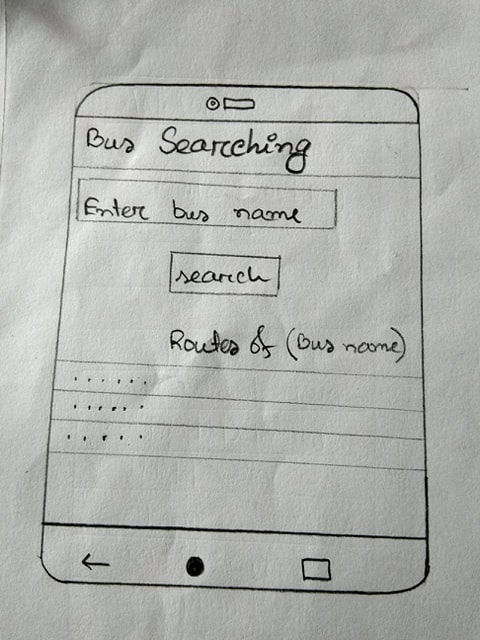 Bus Searching
Enter bus name
search
Routes of (Bus name)